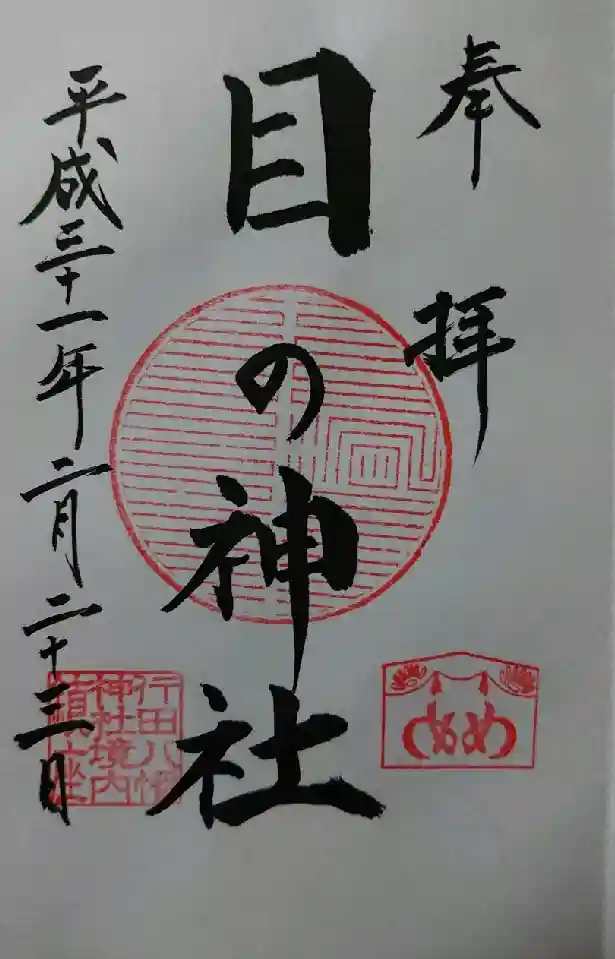 奉拝
目の神社
平成三十一年二月二十三日
行田八幡
神社境内
鎮座
め め